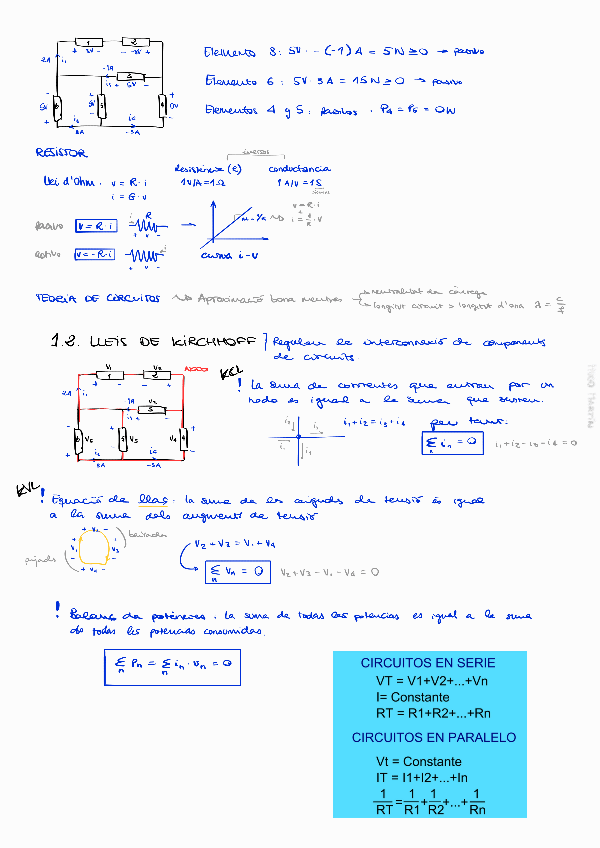 1 2
+ 5V - - 5V +
2A i1
-1A
i1 3
+ 5V -
5V 5V 0V
i4 i6
8A -5A
Elemento 3: 5V · -(-1)A = 5W ≥ 0 → pasivo
Elemento 6: 5V · 3A = 15W ≥ 0 → pasivo
Elementos 4 y 5: pasivos · P4 = P5 = 0W
RESISTOR
inversos
Resistència (R) conductancia
Llei d'Ohm · v = R · i 1V/A = 1Ω 1A/V = 1S
i = G · v
v = R · i
i = 1/R · V
pasivo v = R · i i R + v -
activo v = -R · i i - v +
curva i - V
TEORIA DE CIRCUITOS Aproximació bona mentres
neutralitat de càrrega
longitut circuit > longitut d'ona λ = c/f
1.2. LLEIS DE KIRCHHOFF
Regulen la interconnexió de components
de circuits
NODO
KCL
! La suma de corrientes que entran por un
nodo es igual a la suma que surten.
V1 V2
2A i1
-1A
3
V5 V3 V4
8A -5A
i1 + i2 = i3 + i4 per tant:
∑n in = 0 i1 + i2 - i3 - i4 = 0
KVL
! Equació de llaç · la suma de les caigudes de tensió és igual
a la suma dels augments de tensió
+ V2 - baixades
pujades V1 V3
+ V4 -
V2 + V3 = V1 + V4
∑n Vn = 0 V2 + V3 - V1 - V4 = 0
! Balanç de potències · La suma de todas las potencias es igual a la suma
de todas les potencias consumidas.
∑n Pn = ∑n in · vn = 0
CIRCUITOS EN SERIE
VT = V1+V2+...+Vn
I= Constante
RT = R1+R2+...+Rn
CIRCUITOS EN PARALELO
Vt = Constante
IT = I1+I2+...+In
1/RT = 1/R1 + 1/R2 +...+ 1/Rn